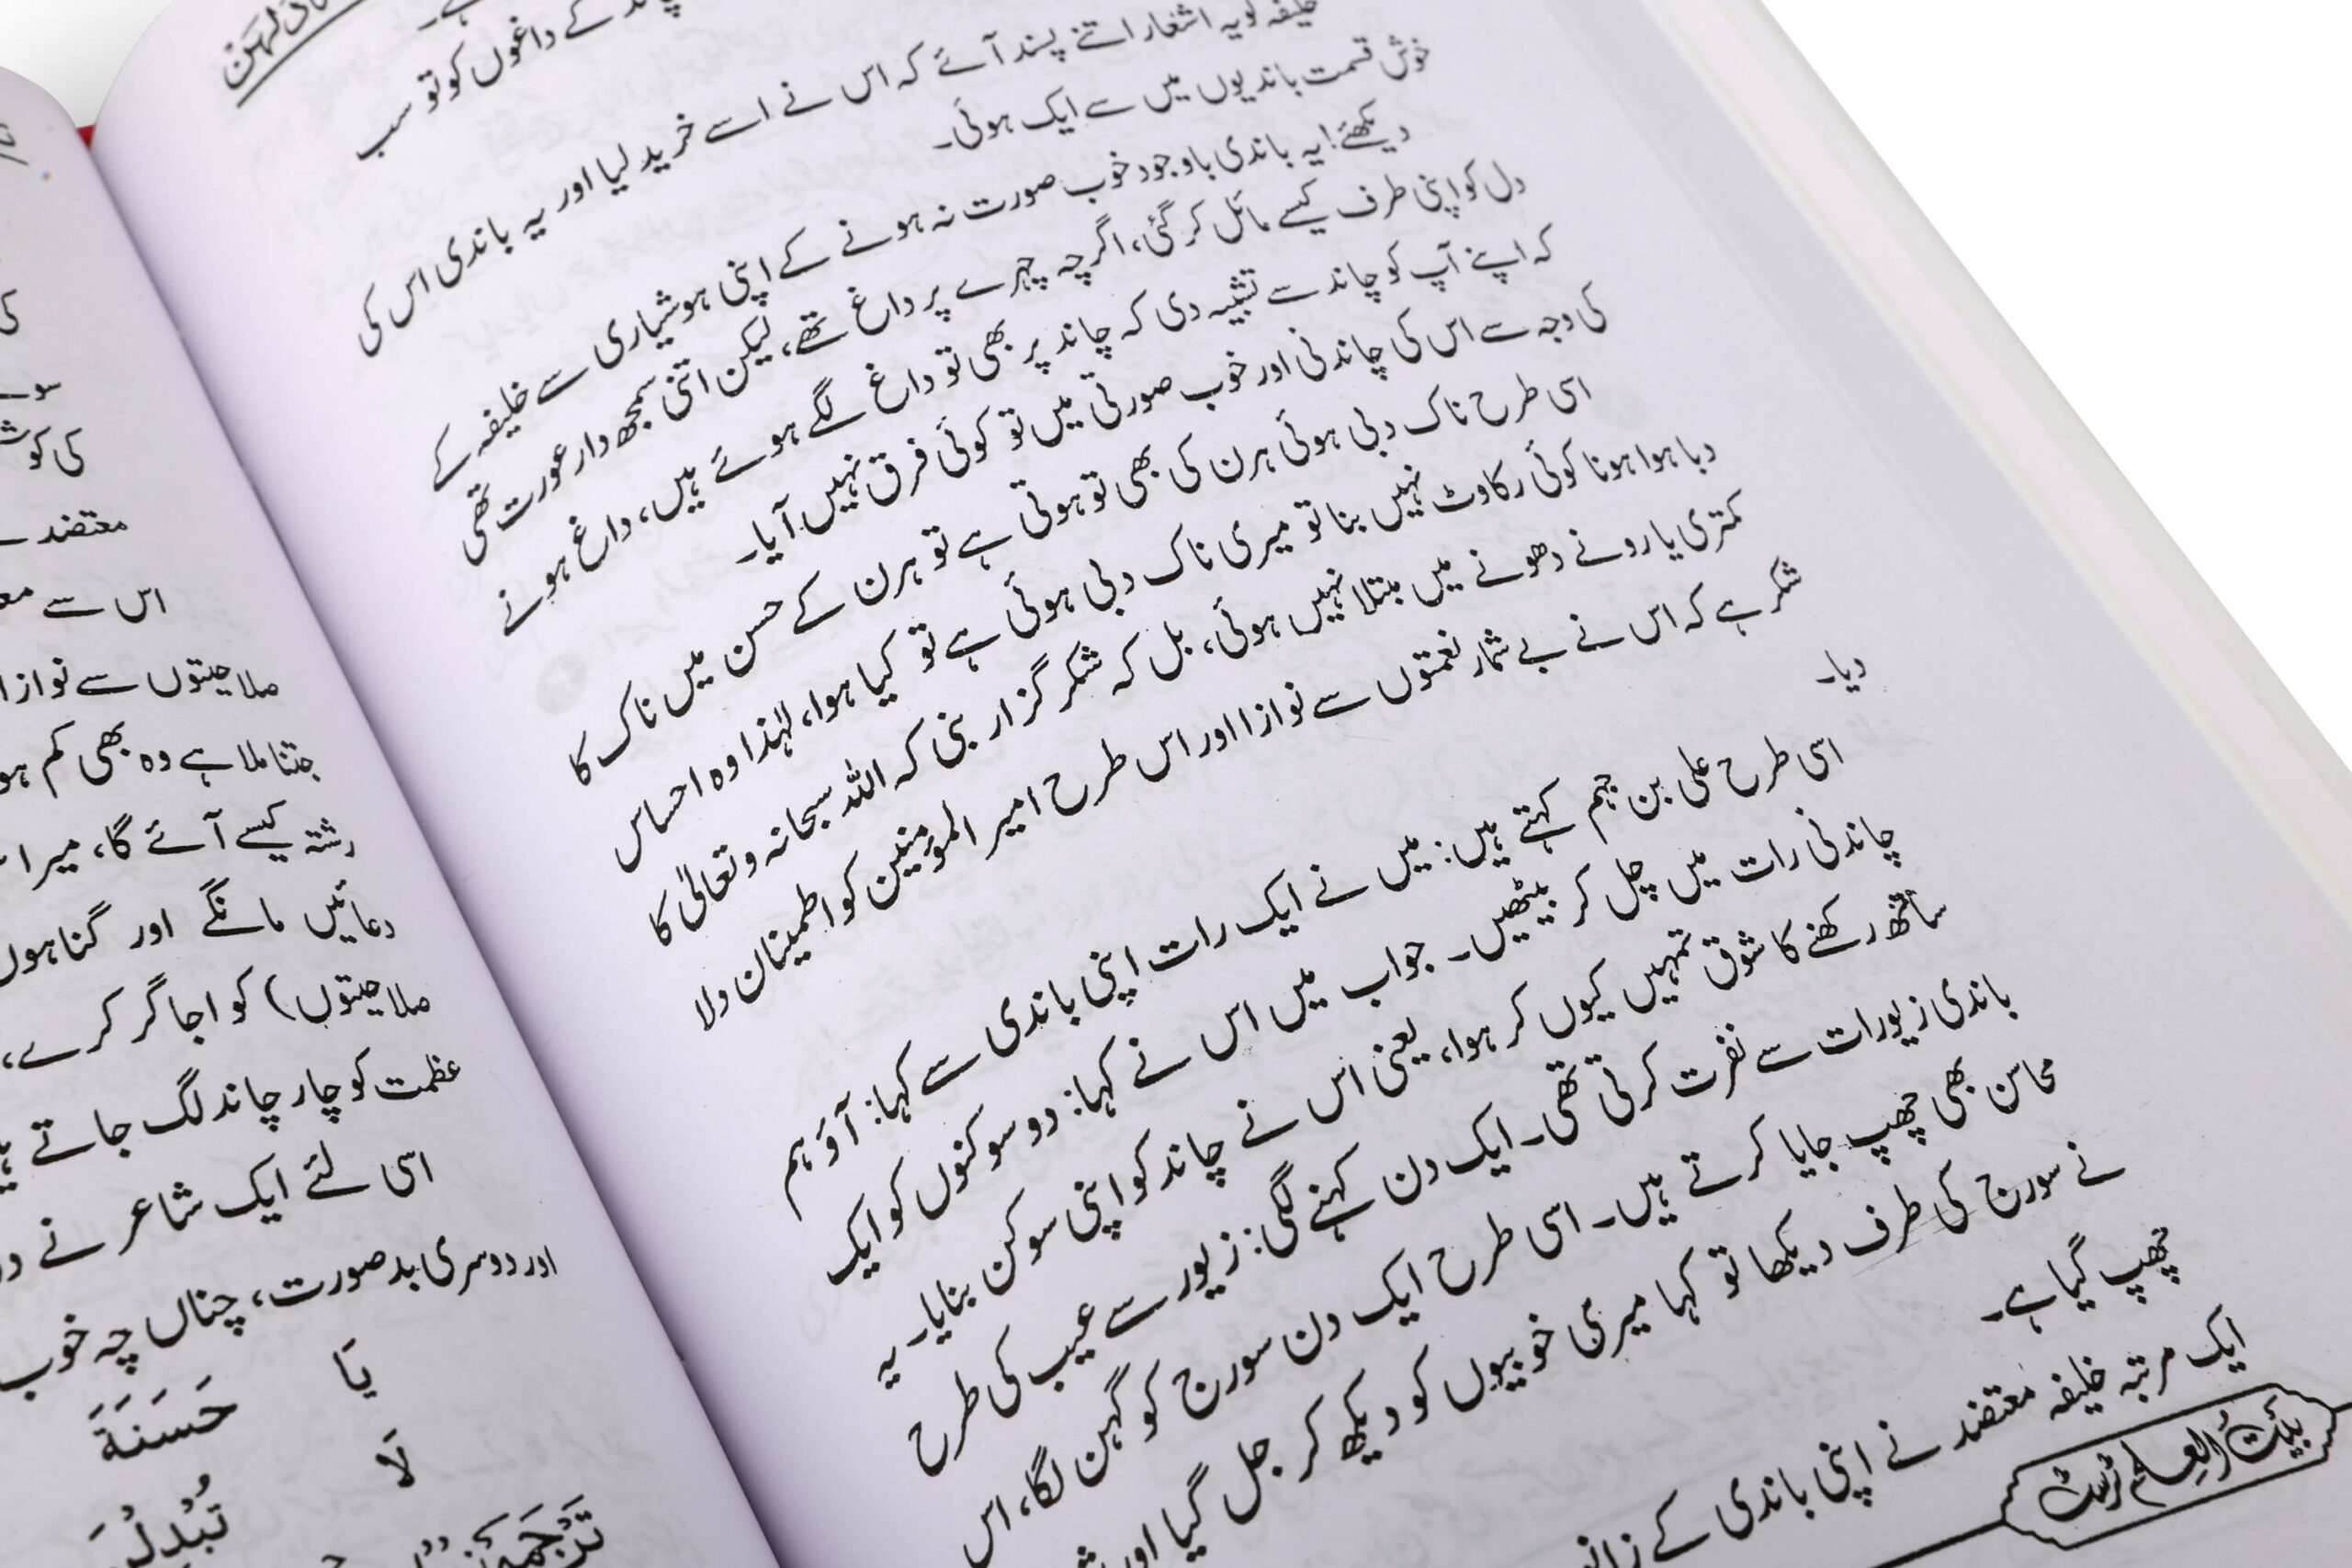 کے داغوں کو تو سب
خلیفہ کو یہ اشعار اتنے پسند آئے کہ اس نے اسے خرید لیا اور یہ باندی اس کی
خوش قسمت باندیوں میں سے ایک ہوئی۔
دیکھئے! یہ باندی باوجود خوب صورت نہ ہونے کے اپنی ہوشیاری سے خلیفہ کے
دل کو اپنی طرف کیسے مائل کر گئی، اگرچہ چہرے پر داغ تھے، لیکن اتنی سمجھ دار عورت تھی
کہ اپنے آپ کو چاند سے تشبیہ دی کہ چاند پر بھی تو داغ لگے ہوئے ہیں، داغ ہونے
کی وجہ سے اس کی چاندنی اور خوب صورتی میں تو کوئی فرق نہیں آیا۔
اسی طرح ناک دبی ہوئی ہرن کی بھی تو ہوتی ہے تو ہرن کے حسن میں ناک کا
دبا ہوا ہونا کوئی رکاوٹ نہیں بنا تو میری ناک دبی ہوئی ہے تو کیا ہوا، لہٰذا وہ احساس
کمتری یا رونے دھونے میں مبتلا نہیں ہوئی، بل کہ شکر گزار بنی کہ اللہ سبحانہ وتعالیٰ کا
شکر ہے کہ اس نے بے شمار نعمتوں سے نوازا اور اس طرح امیر المؤمنین کو اطمینان دلا
دیا۔
اسی طرح علی بن جہم کہتے ہیں: میں نے ایک رات اپنی باندی سے کہا: آؤ ہم
چاندنی رات میں چل کر بیٹھیں۔ جواب میں اس نے کہا: دو سوکنوں کو ایک
ساتھ رکھنے کا شوق تمہیں کیوں کر ہوا، یعنی اس نے چاند کو اپنی سوکن بنایا۔ یہ
باندی زیورات سے نفرت کرتی تھی۔ ایک دن کہنے لگی: زیور سے عیب کی طرح
محاسن بھی چھپ جایا کرتے ہیں۔ اسی طرح ایک دن سورج کو گہن لگا، اس
نے سورج کی طرف دیکھا تو کہا میری خوبیوں کو دیکھ کر جل گیا اور
چھپ گیا ہے۔
ایک مرتبہ خلیفہ معتضد نے اپنی باندی کے
بیت العلم ٹرسٹ
کی
کی
معتضد
اس سے
صلاحیتوں سے نوازا
جتنا ملا ہے وہ بھی کم
رشتہ کیسے آئے گا، میرا
دعائیں مانگے اور گناہوں
صلاحیتوں) کو اجاگر کرے،
عظمت کو چار چاند لگ جاتے
اسی لئے ایک شاعر نے
اور دوسری بدصورت، چناں چہ خوب
یَا حَسَنَةَ
لَا